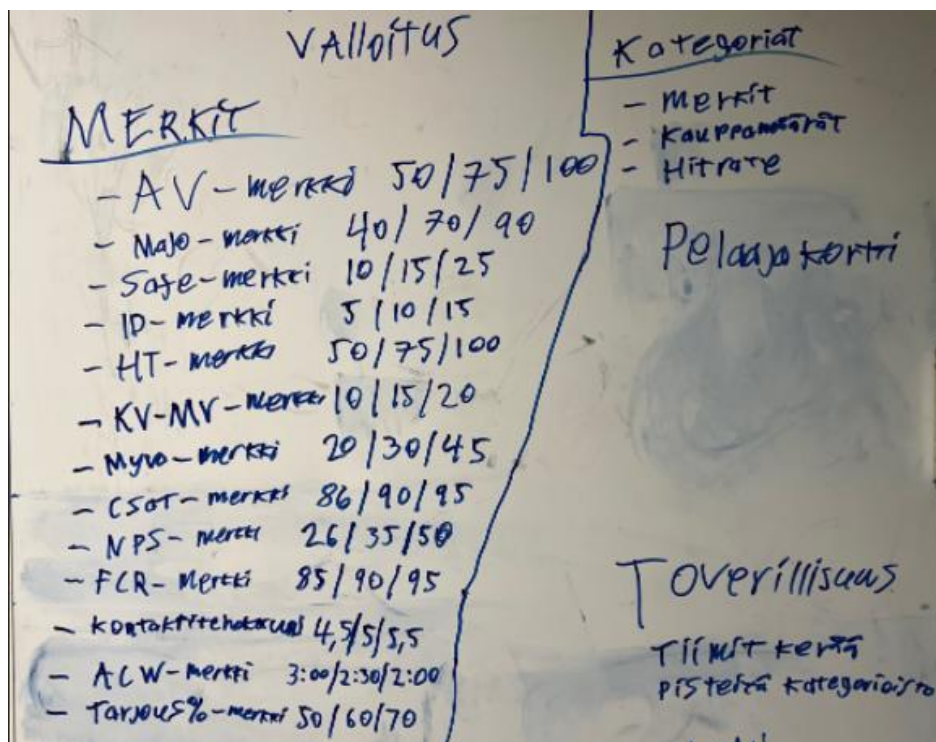 VAlloitus
MERKIT
- AV-merkki 50/75/100
- Majo-merkki 40/70/90
- Safe-merkki 10/15/25
- ID-merkki 5/10/15
- HT-merkki 50/75/100
- KV-MV-merkki 10/15/20
- Myvo-merkki 20/30/45
- CSAT-merkki 86/90/95
- NPS-merkki 26/35/50
- FCR-merkki 85/90/95
- Kontaktitehokkuus 4,5/5/5,5
- ACW-merkki 3:00/2:30/2:00
- Tarjous%-merkki 50/60/70
Kategoriat
- merkit
- Kauppamäärät
- Hitrate
Pelaajakortti
Toverillisuus
Tiimit kerää
pisteitä kategorioista